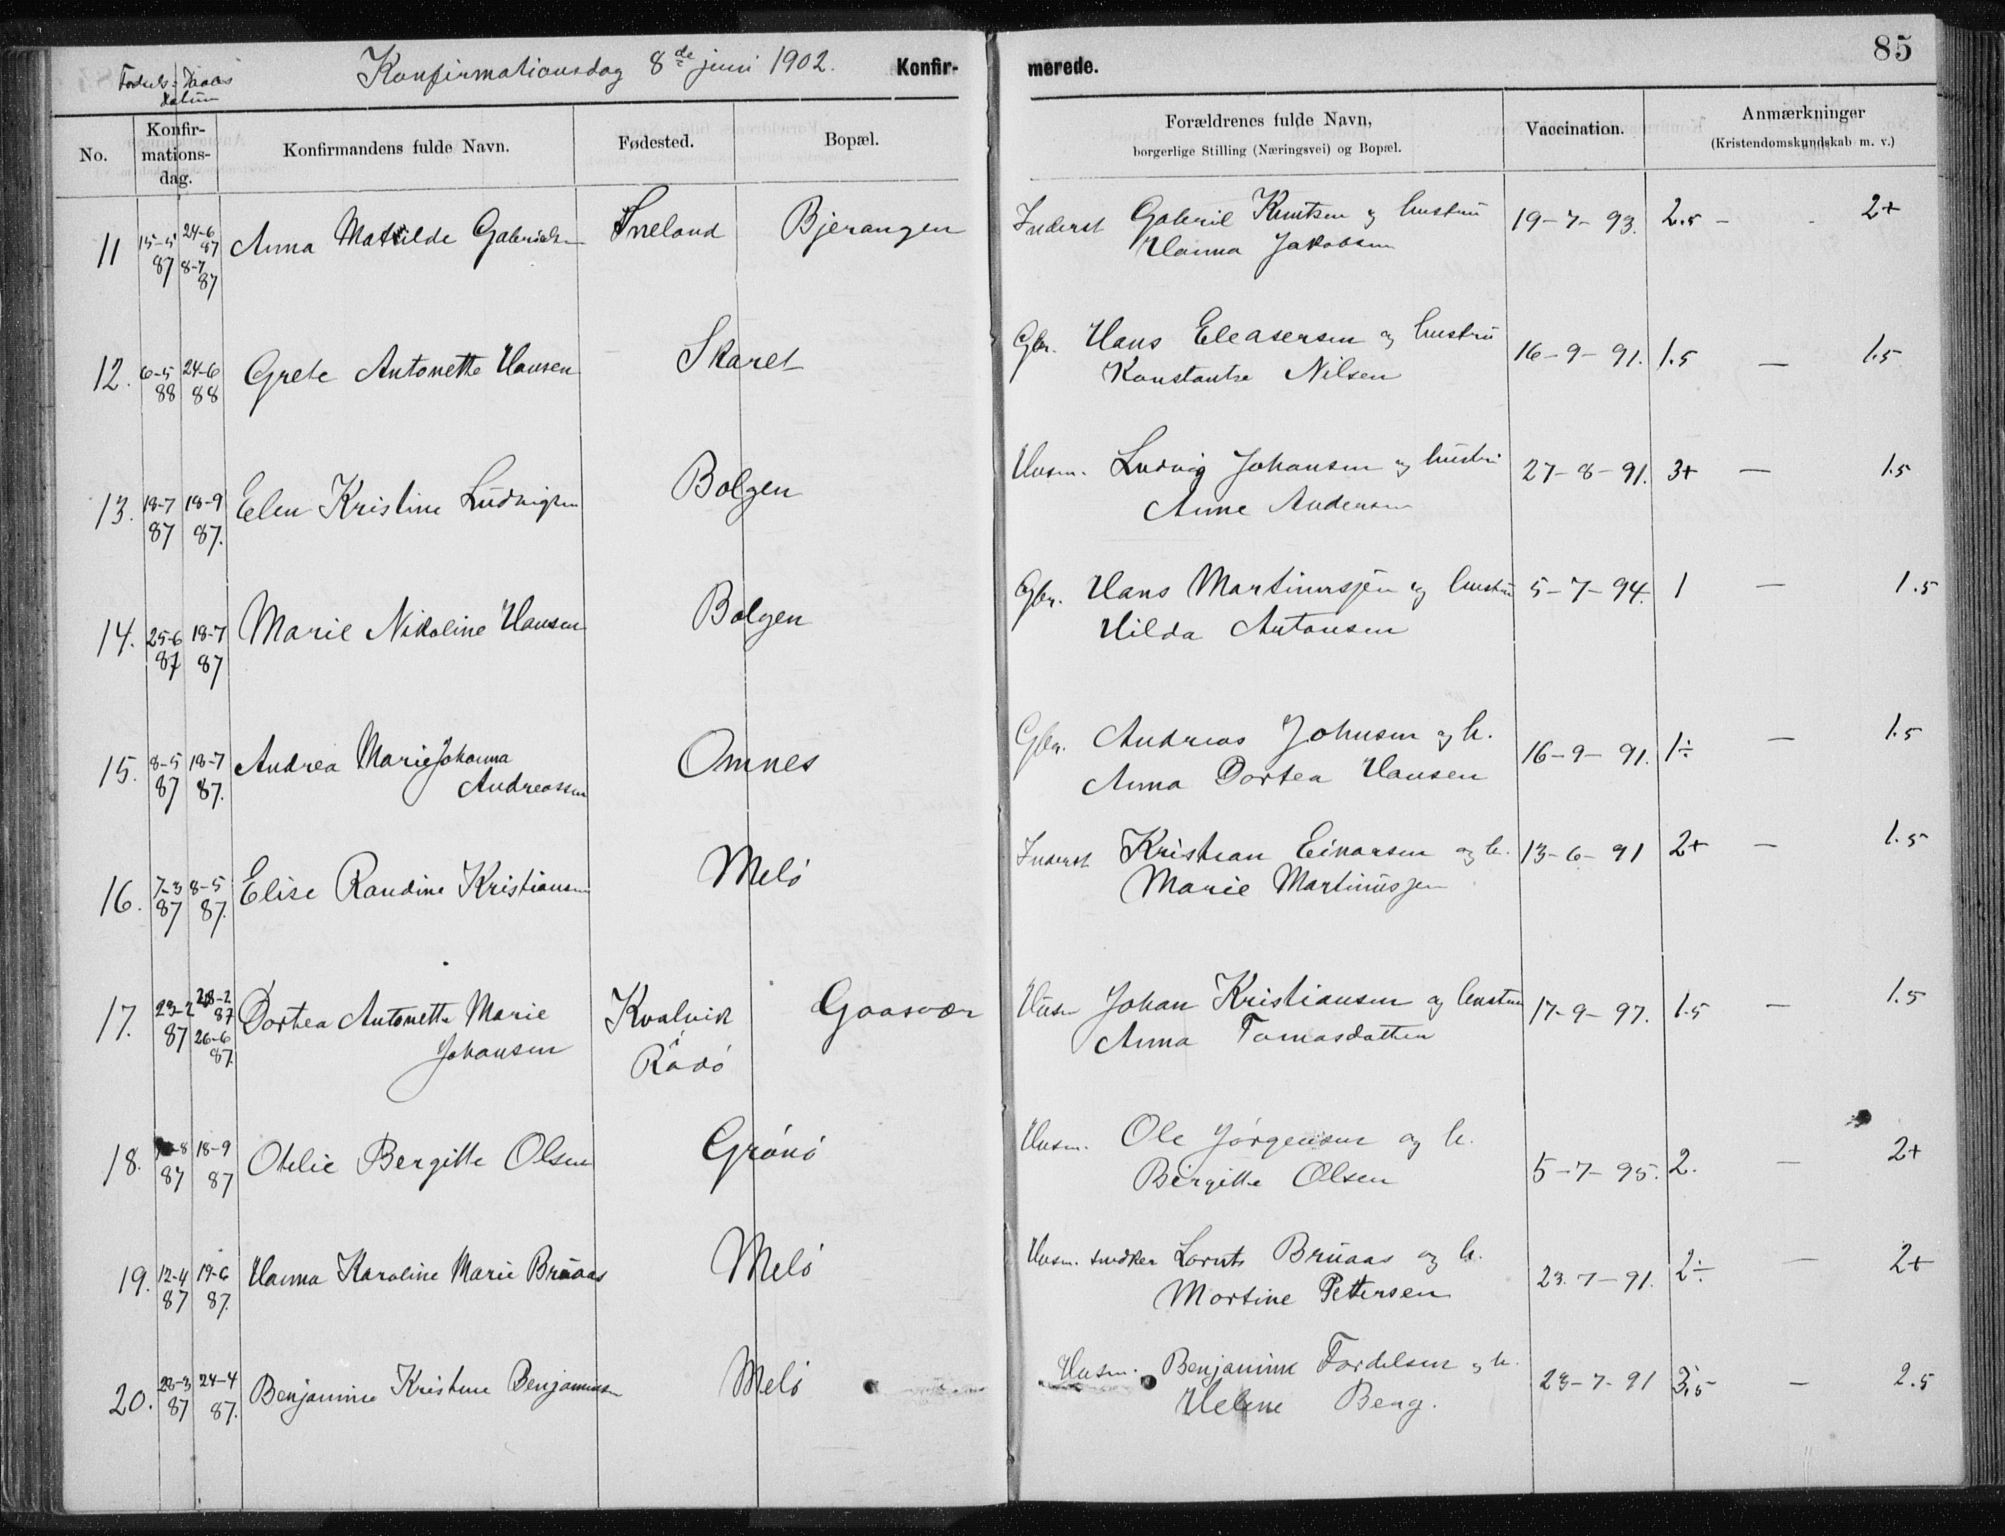 85
Fødsels- Daabs
datum
Konfirmationsdag 8de juni 1902.
Konfir-
merede.
No.
Konfir-
mations-
dag.
Konfirmandens fulde Navn.
Fødested.
Bopæl.
Forældrenes fulde Navn,
borgerlige Stilling (Næringsvei) og Bopæl.
Vaccination.
Anmærkninger
(Kristendomskundskab m. v.)
11 15-5 87 24-6 87 8-7 87 Anna Matilde Gabrielsen Bjerangen Inderst Gabriel Knutsen og hustru 19-7-93. 2.5 - 2+
Hanna Jakobsen
12. 6-5 88 24-6 88 Grete Antonette Hansen Skaret Gbr. Hans Eleasersen og hustru 16-9-91. 1.5 — 1.5
Konstantse Nilsen
13. 18-7 87 18-9 87. Elen Kristine Ludvigsen Bolgen Husm. Ludvig Johansen og hustru 27-8-91. 3+ — 1.5
Anne Andersen
14. 25-6 87 18-7 87 Marie Nikoline Hansen Bolgen Gbr. Hans Martinussen og hustru 5-7-94. 1 — 1.5
Hilda Antonsen
15. 8-5 87 18-7 87. Andrea Marie Johanna Omnes Gbr. Andreas Johnsen og h. 16-9-91. 1÷ — 1.5
Andreassen Anna Dortea Hansen
16. 7-3 87 8-5 87. Elise Randine Kristiansen Melö Inderst Kristian Einarsen og h. 13-6-91 2+ — 1.5
Marie Martinussen
17. 23-2 87 28-2 87 26-6 87. Dortea Antonette Marie Kvalvik Gaasvær Husm Johan Kristiansen og hustru 17-9-97. 1.5 — 1.5
Johansen i Rödö Anna Tomasdatter
18. 87 18-9 87 Otelie Bergitte Olsen Grönö Husm. Ole Jörgensen og h. 5-7-95. 2. — 2+
Birgitte Olsen
19. 12-4 87 19-6 87. Hanna Karoline Marie Bruaas Melö Husm. snedker Lornts Bruaas og h. 23.7-91. 2÷ — 2+
Martine Pettersen
20. 28-3 87 24-4 87. Benjamine Kristine Benjaminsen Melö Husm. Benjamin Tordelsen og h. 23-7-91 3.5 — 2.5
Helene Berg.